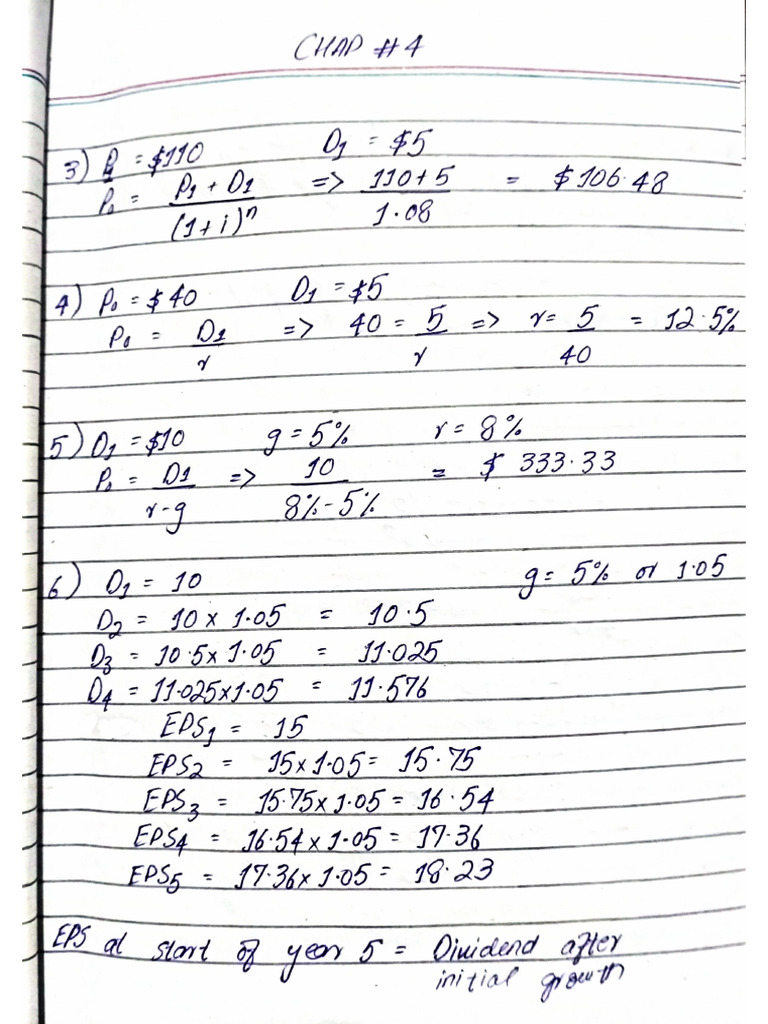 CHAP #4
3) P₁ = $110 D₁ = $5
P₀ = P₁ + D₁ / (1+i)ⁿ => 110+5 / 1.08 = $106.48
4) P₀ = $40 D₁ = $5
P₀ = D₁ / r => 40 = 5 / r => r = 5 / 40 = 12.5%
5) D₁ = $10 g = 5% r = 8%
P₀ = D₁ / r-g => 10 / 8%-5% = $333.33
6) D₁ = 10 g = 5% or 1.05
D₂ = 10 x 1.05 = 10.5
D₃ = 10.5 x 1.05 = 11.025
D₄ = 11.025x1.05 = 11.576
EPS₁ = 15
EPS₂ = 15x1.05 = 15.75
EPS₃ = 15.75x1.05 = 16.54
EPS₄ = 16.54x1.05 = 17.36
EPS₅ = 17.36x1.05 = 18.23
EPS at start of year 5 = Dividend after
initial growth